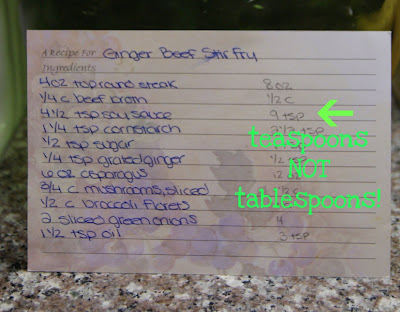 A Recipe For Ginger Beef Stir Fry
Ingredients
4 oz top round steak 8 oz
1/4 c beef broth 1/2 c
4 1/2 tsp soy sauce 9 tsp
1 1/4 tsp cornstarch 2 1/2 tsp
1/2 tsp sugar
1/4 tsp grated ginger 1/2 tsp
6 oz asparagus 12
3/4 c mushrooms, sliced
1/2 c broccoli florets
2 sliced green onions 4
1 1/2 tsp oil 3 tsp
teaspoons
NOT
tablespoons!